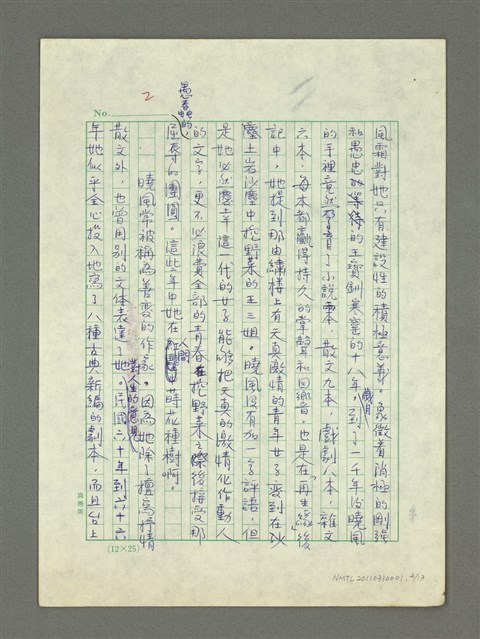 2
No.
風霜對她只有建設性的積極意義。象徵着消極的剛強
和愚忠的等待的王寶釧寒窰的十八年歲月,到了一千年後曉風
的手裡竟然孕育了小說一本,散文九本,戲劇八本,雜文
六本,每本都贏得持久的掌聲和回響音,也是在「再生緣」後
記中,她提到那由繡樓上有天真激情的青年女子變到在砂
塵土岩沙塵中挖野菜的王三姐。曉風沒有加一字評語,但
是她必然慶幸這一代的女子能够把天真的激情化作動人
的文字,更不必浪費全部的青春在挖野菜之際後接受那
愚蠢的,屈辱的團圓。這些年中她在人間蒔花種樹啊。
曉風常被稱為善變的作家。因為她除了擅寫抒情
散文外,也曾用別的文体表達了她對人生的意見。民國六十年到六十六
年她似乎全心投入地寫了八種古典新編的劇本,而且台上
(12×25)
NMTL20110310001, 4/13